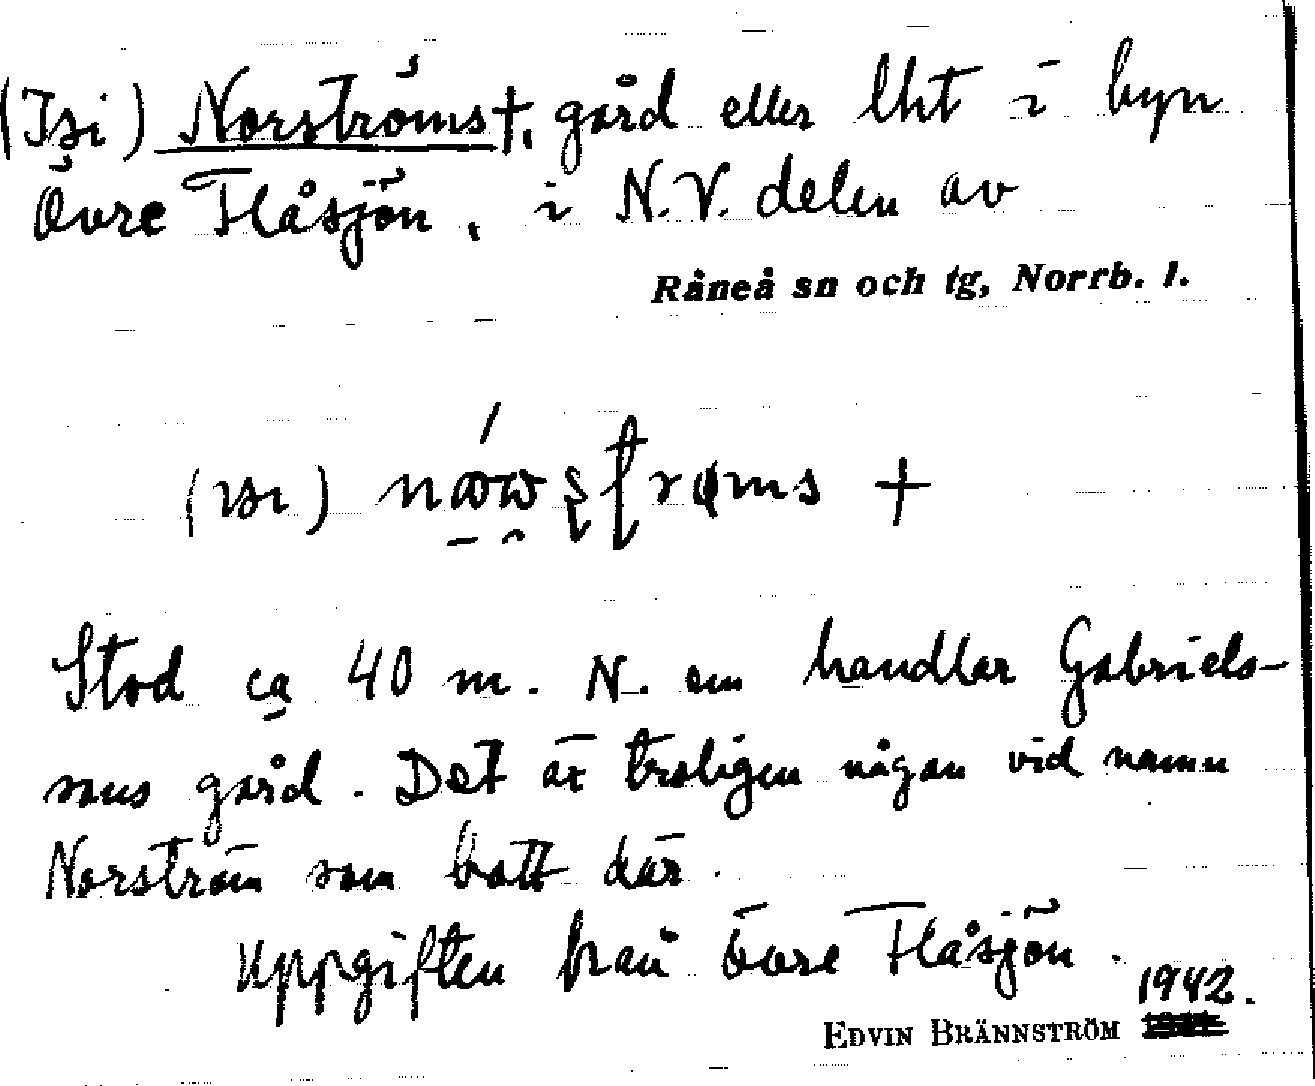 (Isi) Norströms†, gård eller lht i byn
Övre Flåsjön, i N.V. delen av
Råneå sn och tg, Norrb. l.
(ısı) +
Stod ca 40 m. N. om handlar Gabriels-
sons gård. Det är troligen någon vid namn
Norström som bott där.
Uppgiften från övre Flåsjön.
1942.
EDVIN BRÄNNSTRÖM